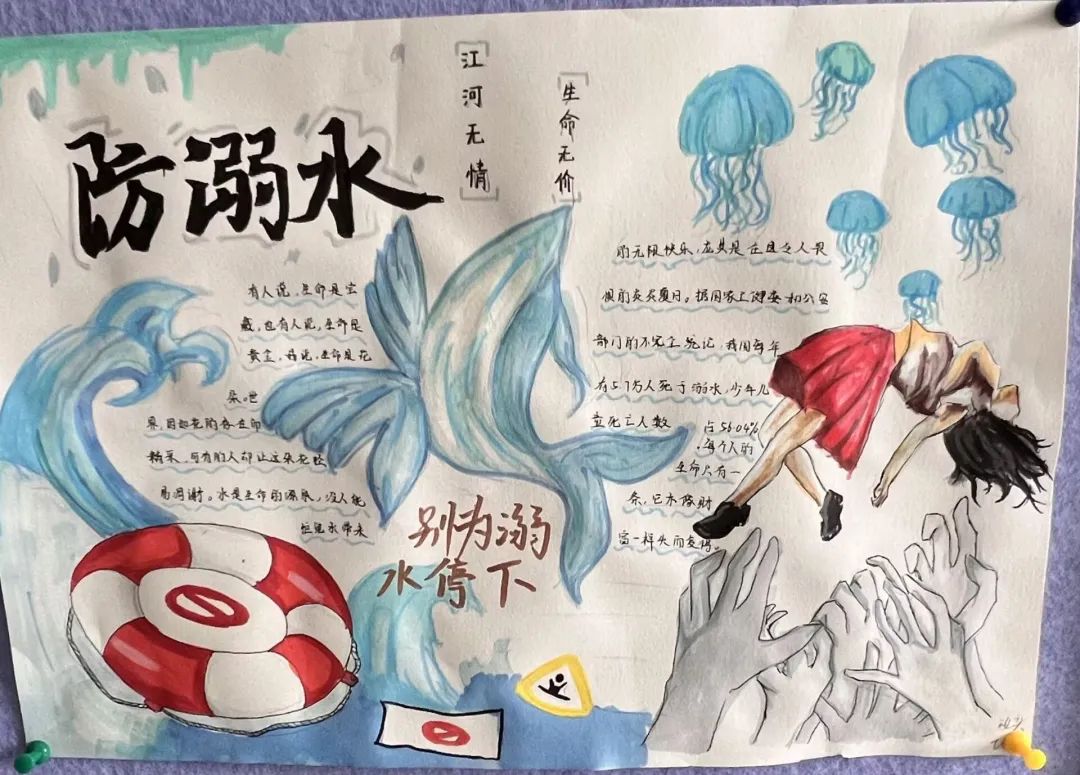 防溺水
江河无情
生命无价
有人说,生命是宝
藏,也有人说,生命是
黄金,我说,生命是花
朵。世
界,因如花的各在而
精采,可有的人却让这朵花轻
易凋谢。水是生命的源泉,没人能
拒绝水带来
的无限快乐,尤其是在这令人畏
惧的炎炎夏日。据国家卫健委和公安
部门的不完全统记,我国每年
有5.7万人死于溺水,少年儿
童死亡人数
占56.04%
,每个人的
生命只有一
条,它不像财
富一样失而复得。
别为溺
水停下